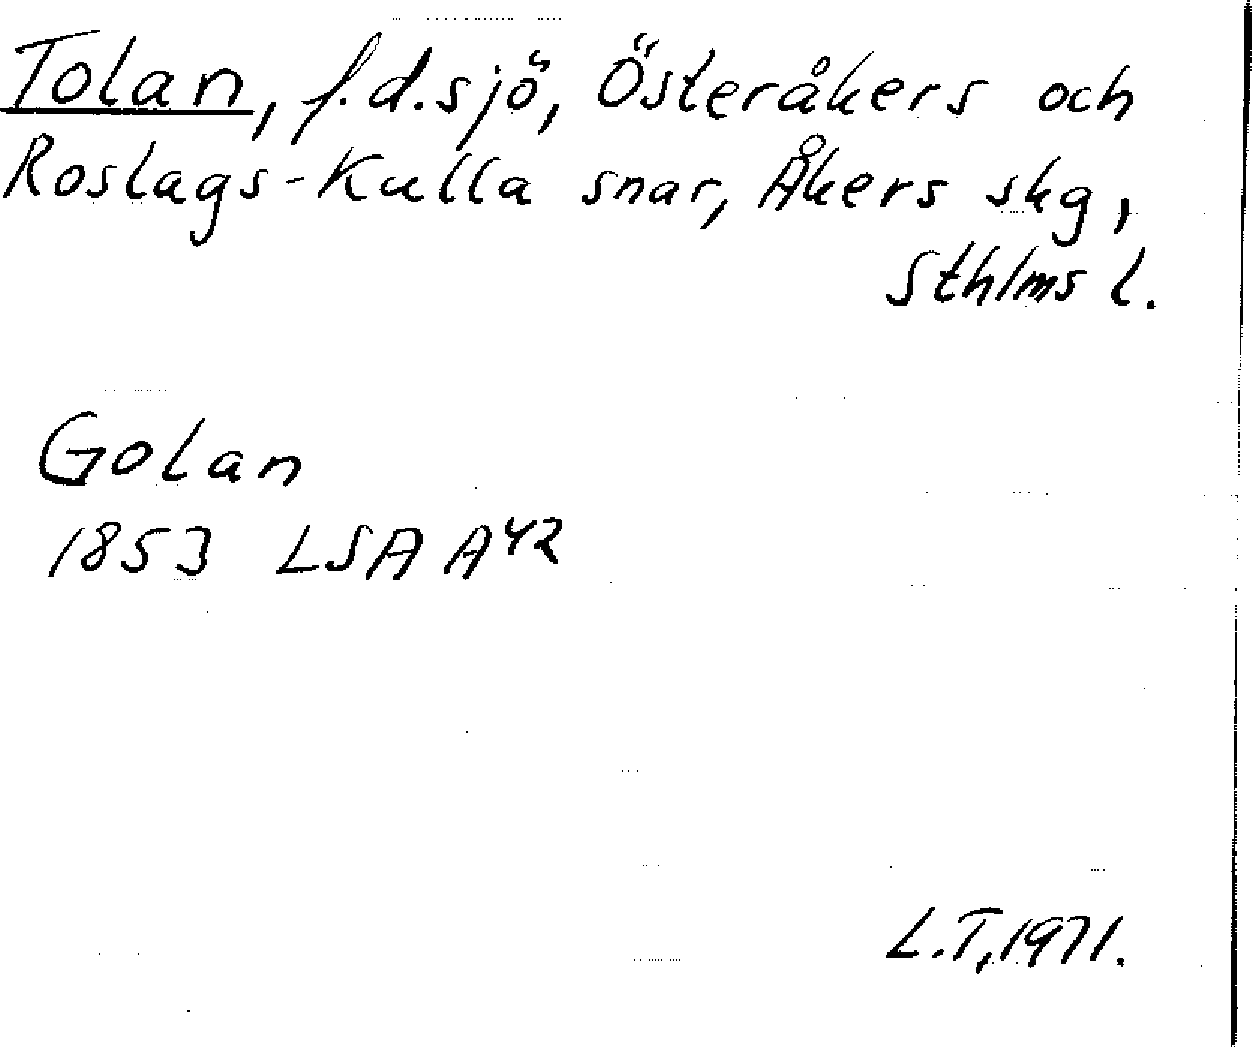 Tolan, f.d.sjö, Österåkers och
Roslags-Kulla snar, Åkers skg,
Sthlms l.
Golan
1853 LSA A42
L.T, 1971.